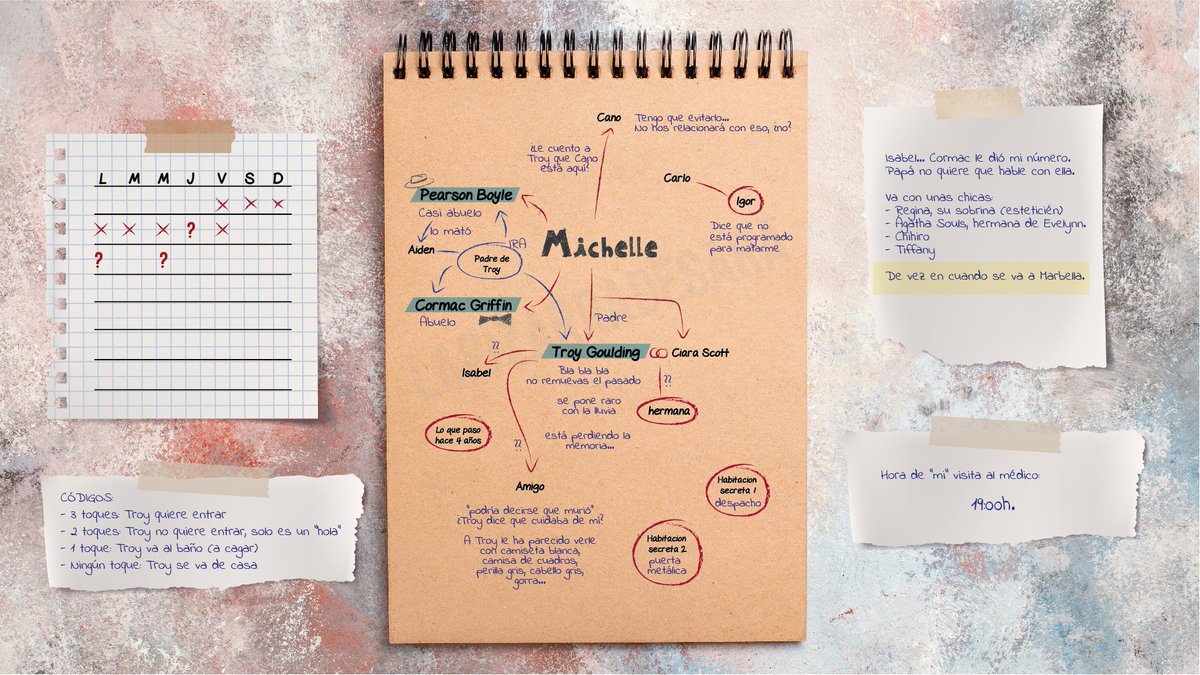 L M M J V S D
X X X
X X X ? X
? ?
CÓDIGOS:
- 3 toques: Troy quiere entrar
- 2 toques: Troy no quiere entrar, solo es un "hola"
- 1 toque: Troy va al baño (a cagar)
- Ningún toque: Troy se va de casa
Cano
Tengo que evitarlo...
No nos relacionará con eso, ¿no?
¿Le cuento a
Troy que Cano
está aquí?
Carlo
Igor
Dice que no
está programado
para matarme
Pearson Boyle
Casi abuelo
lo mató
Aiden
IRA
Padre de
Troy
Michelle
Cormac Griffin
Abuelo
Padre
Troy Goulding
Clara Scott
??
Isabel
Bla bla bla
no remuevas el pasado
se pone raro
con la lluvia
está perdiendo la
memoria...
??
hermana
Lo que paso
hace 4 años
??
Amigo
"podría decirse que murió"
¿Troy dice que cuidaba de mí?
A Troy le ha parecido verle
con camiseta blanca,
camisa de cuadros,
perilla gris, cabello gris,
gorra...
Habitacion
secreta 1
despacho
Habitacion
secreta 2
puerta
metálica
Isabel... Cormac le dió mi número.
Papá no quiere que hable con ella.
Va con unas chicas:
- Regina, su sobrina (esteticién)
- Agatha Souls, hermana de Evelynn.
- Chihiro
- Tiffany
De vez en cuando se va a Marbella.
Hora de "mi" visita al médico:
19:00h.